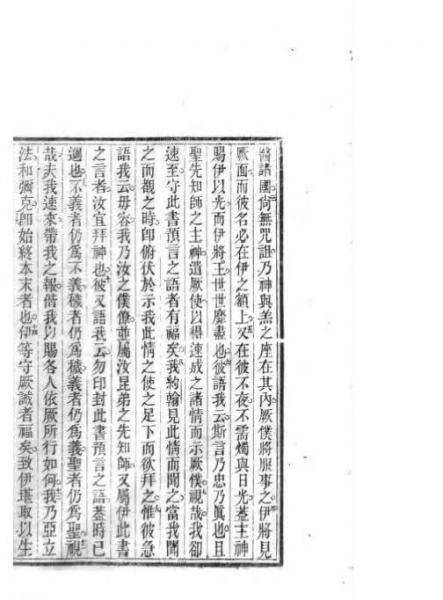 醫諸國尚無咒詛乃神與羔之座在其內厥僕將服事之伊將見
厥面而彼名必在伊之額上又在彼不夜不需燭與日光蓋主神
賜伊以光而伊將王世世靡盡也彼語我云斯言乃忠乃眞也且
聖先知師之主神遣厥使以得速成之諸情而示厥僕視哉我卻
速至守此書預言之語者有福矣我約翰見此情而聞之當我聞
之而觀之時卽俯伏於示我此情之使之足下而欲拜之惟彼急
語我云毋容我乃汝之僕僚並屬汝昆弟之先知師又屬伊此書
之言者汝宜拜神也彼又語我云勿印封此書預言之語蓋時已
邇也不義者仍爲不義穢者仍爲穢義者仍爲義聖者仍爲聖視
哉夫我速來帶我之報偕我以賜各人依厥所行如何我乃亞立
法和彌克卽始終本末者也伊等守厥誡者福矣致伊堪取以生